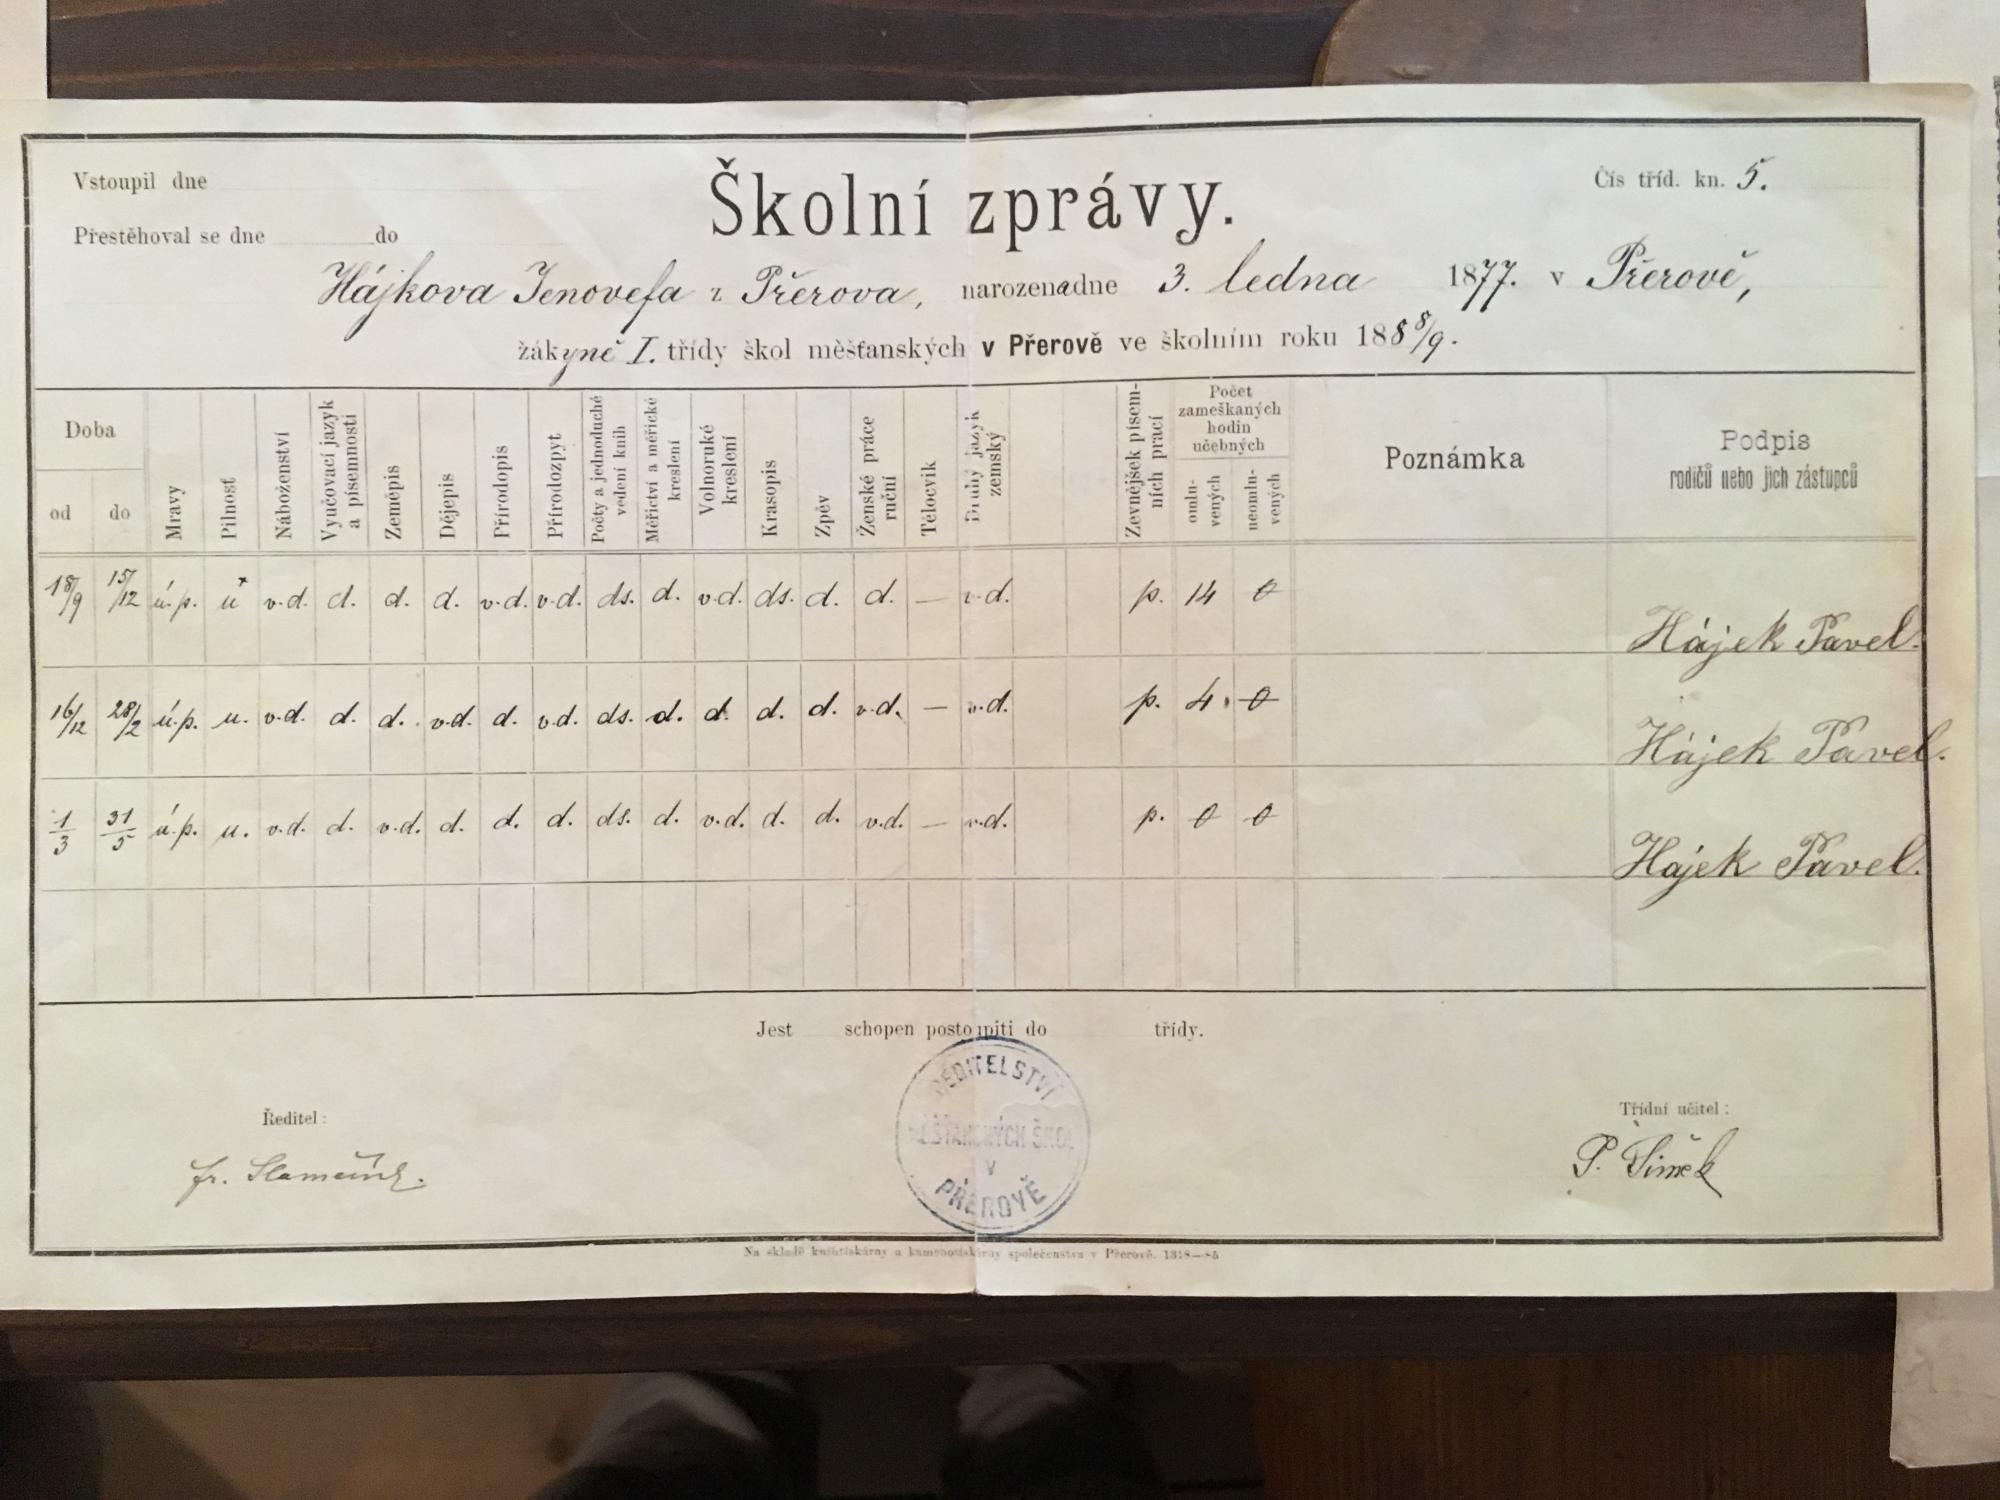 Vstoupil dne
Školní zprávy.
Čís tříd. kn. 5.
Přestěhoval se dne do
Hájkova Jenovefa z Přerova, narozena dne 3. ledna 1877. v Přerově,
žákyně I. třídy škol měšťanských v Přerově ve školním roku 1888/9.
Doba
od
do
Mravy
Pilnosť
Náboženství
Vyučovací jazyk a písemnosti
Zeměpis
Dějepis
Přírodopis
Přírodozpyt
Počty a jednoduché vedení knih
Měřictví a měřické kreslení
Volnoruké kreslení
Krasopis
Zpěv
Ženské práce ruční
Tělocvik
Druhý jazyk zemský
Zevnějšek písemních prací
Počet zameškaných hodin učebných
omluvených
neomluvených
Poznámka
Podpis
rodičů nebo jich zástupců
18/9 15/12 ú.p. u v.d. d. d. d. v.d. v.d. ds. d. v.d. ds. d. d. — v.d. p. 14 0 Hájek Pavel.
16/12 28/2 ú.p. u. v.d. d. d. v.d. d. v.d. ds. d. d. d. d. v.d. — v.d. p. 4 0 Hájek Pavel.
1/3 31/5 ú.p. u. v.d. d. v.d. d. d. d. ds. d. v.d. d. d. v.d. — v.d. p. 0 0 Hájek Pavel.
Jest schopen postoupiti do třídy.
ŘEDITELSTVÍ
MĚŠŤANSKÝCH ŠKOL
V
PŘEROVĚ
Ředitel:
Fr. Slaměník.
Třídní učitel:
P. Šimek
Na skladě knihtiskárny a kamenotiskárny společenstva v Přerově.